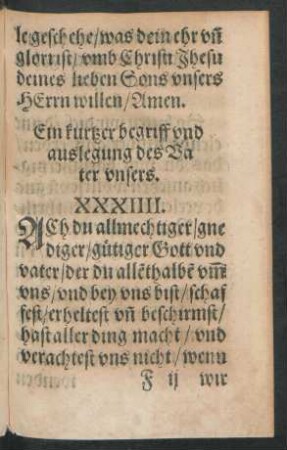 le geschehe/was dein ehr vñ
glori ist/vmb Christi Jhesu
deines lieben Sons vnsers
HErrn willen/Amen.
Ein kurtzer begriff vnd
auslegung des Va
ter vnsers.
XXXIIII.
ACh du allmechtiger/gne
diger/gütiger Gott vnd
vater/der du allẽthalbẽ vm̃
vns/vnd bey vns bist/schaf
fest/erheltest vñ beschirmst/
hast aller ding macht/vnd
verachtest vns nicht/wenn
F ij wir